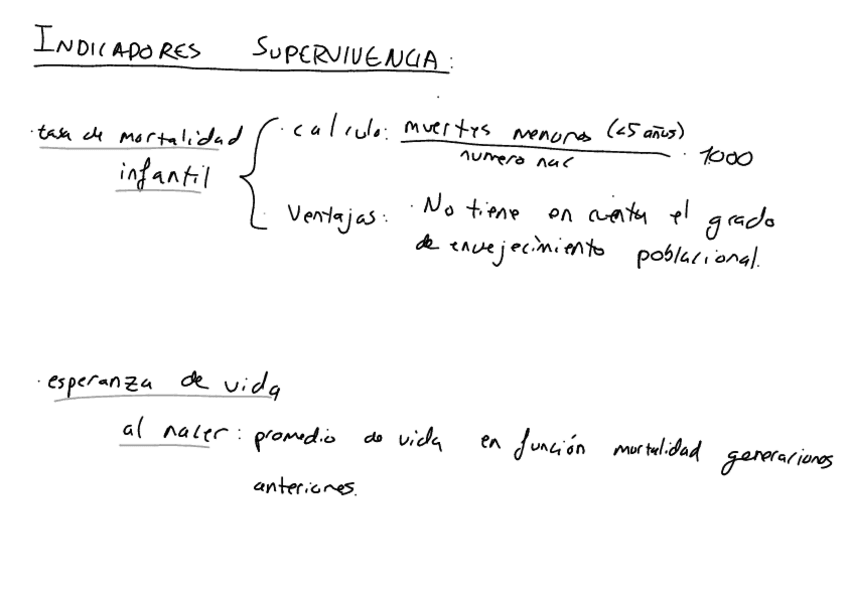 INDICADORES SUPERVIVENCIA:
· tasa de mortalidad infantil
· calculo: muertes menores (<5 años)
numero nac
· 1000
Ventajas: · No tiene en cuenta el grado
de envejecimiento poblacional.
· esperanza de vida
al nacer: promedio de vida en función mortalidad generaciones
anteriores.